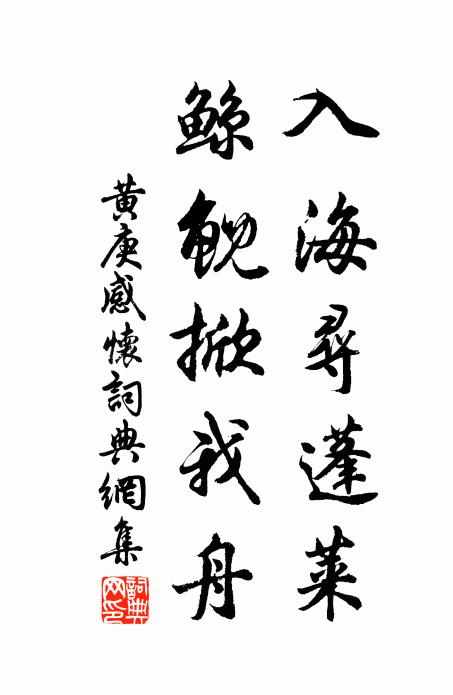 入海尋蓬萊
鲸鲵掀我舟
黄庚感懷詞典網集
詞典網印